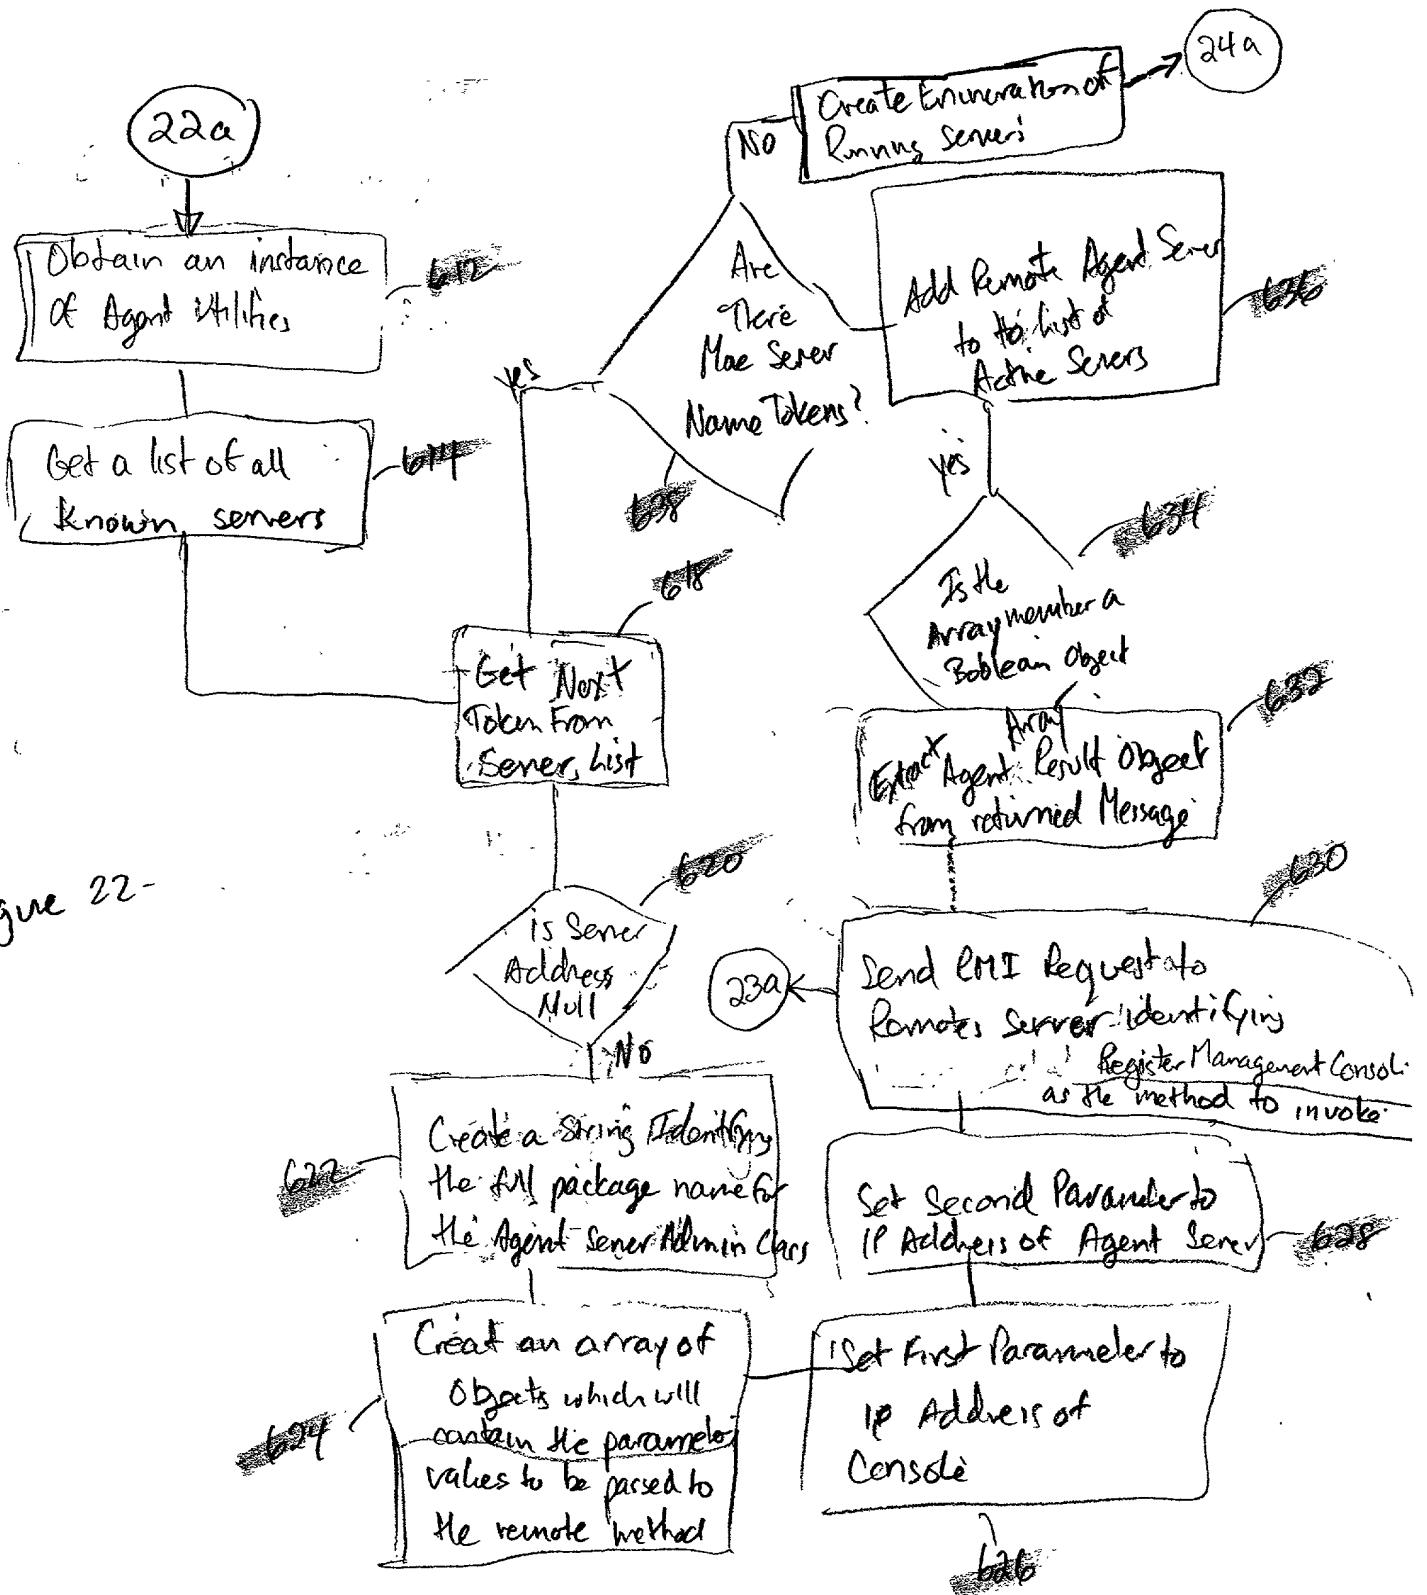 22a
Obtain an instance
Of Agent Utilities
612
Get a list of all
Known servers
614
Get Next
Token From
Server List
618
is Server
Address
Null
620
No
Create a String Identifying
the full package name for
the Agent Server Admin Class
622
Creat an array of
Objects which will
contain the parameter
values to be parsed to
the remote method
624
Set First Parameter to
IP Address of
Console
626
Set Second Parameter to
IP Address of Agent Server
628
Send RMI Request to
Remote Server identifying
Register Management Consol
as the method to invoke
630
23a
Extract Agent Array Result Object
from returned Message
632
Is the
Array member a
Boolean Object
634
yes
Add Remote Agent Server
to to list of
Active Servers
636
Are
There
More Server
Name Tokens?
638
yes
NO
Create Enumeration of
Running Servers
24a
gure 22-